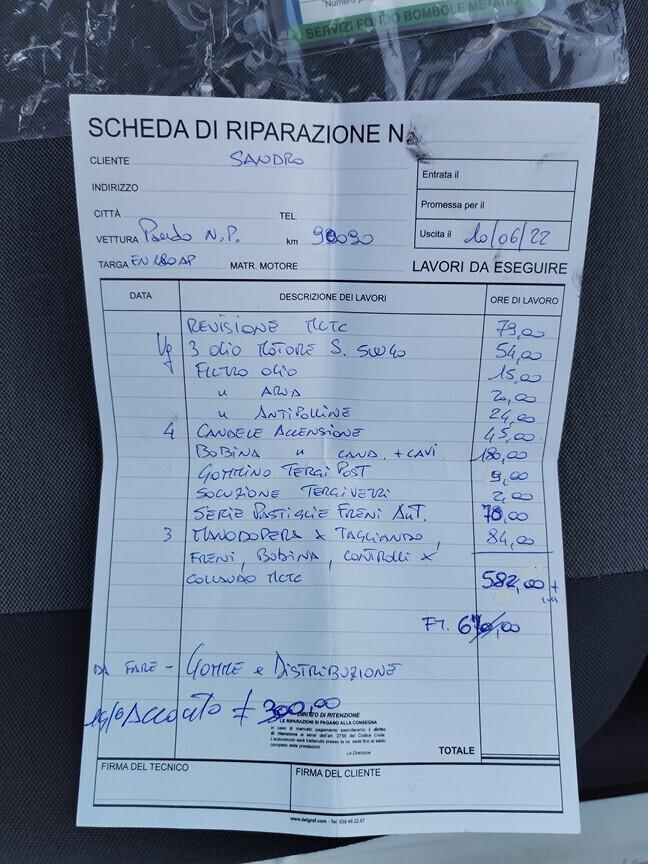 SERVIZI FONDO BOMBOLE METANO
SCHEDA DI RIPARAZIONE N.
CLIENTE SANDRO
INDIRIZZO
CITTÀ TEL.
VETTURA Punto N.P. km 90090
TARGA EN 280 AP MATR. MOTORE
Entrata il
Promessa per il
Uscita il 10/06/22
LAVORI DA ESEGUIRE
DATA DESCRIZIONE DEI LAVORI ORE DI LAVORO
REVISIONE MCTC 79,00
Kg 3 OLIO MOTORE S. 5W40 54,00
FILTRO OLIO 15,00
" ARIA 20,00
" ANTIPOLLINE 24,00
4 CANDELE ACCENSIONE 45,00
BOBINA " CAND. + CAVI 180,00
GOMMINO TERGI POST 9,00
SOLUZIONE TERGIVETRI 2,00
SERIE PASTIGLIE FRENI ANT. 70,00
3 MANODOPERA X TAGLIANDO, 84,00
FRENI, BOBINA, CONTROLLI X
COLLAUDO MCTC 582,00 +
FT.
DA FARE - GOMME e DISTRIBUZIONE
Acconto € 300,00
DIRITTO DI RITENZIONE
LE RIPARAZIONI SI PAGANO ALLA CONSEGNA
In caso di mancato pagamento eserciteremo il diritto
di ritenzione ai sensi dell'art. 2756 del Codice Civile.
L'autoveicolo sarà trattenuto presso la ns. sede fino al saldo
completo delle prestazioni.
La Direzione
TOTALE
FIRMA DEL TECNICO FIRMA DEL CLIENTE
www.delgraf.com - Tel. 039 46.22.67